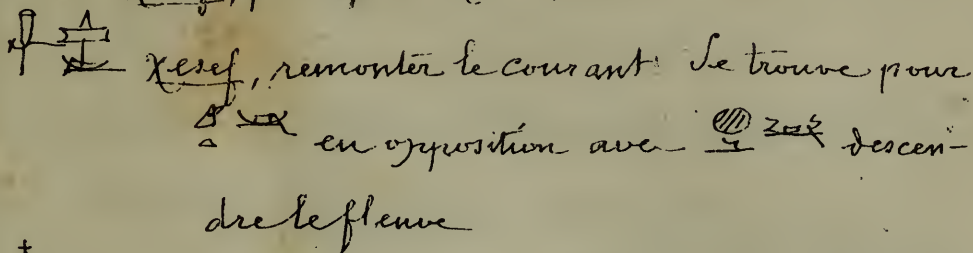 χesef, remontér le courant Se trouve pour
en opposition avec descen-
dre le fleuve